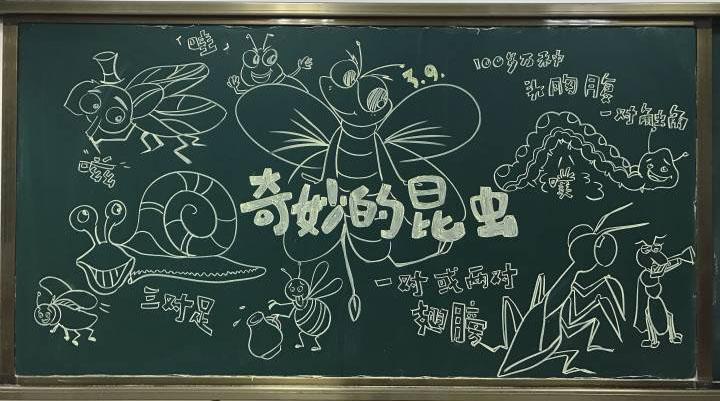 「哇」
3.9.
100多万种
头胸腹
一对触角
嗡
噗
奇妙的昆虫
三对足
一对或两对
翅膀